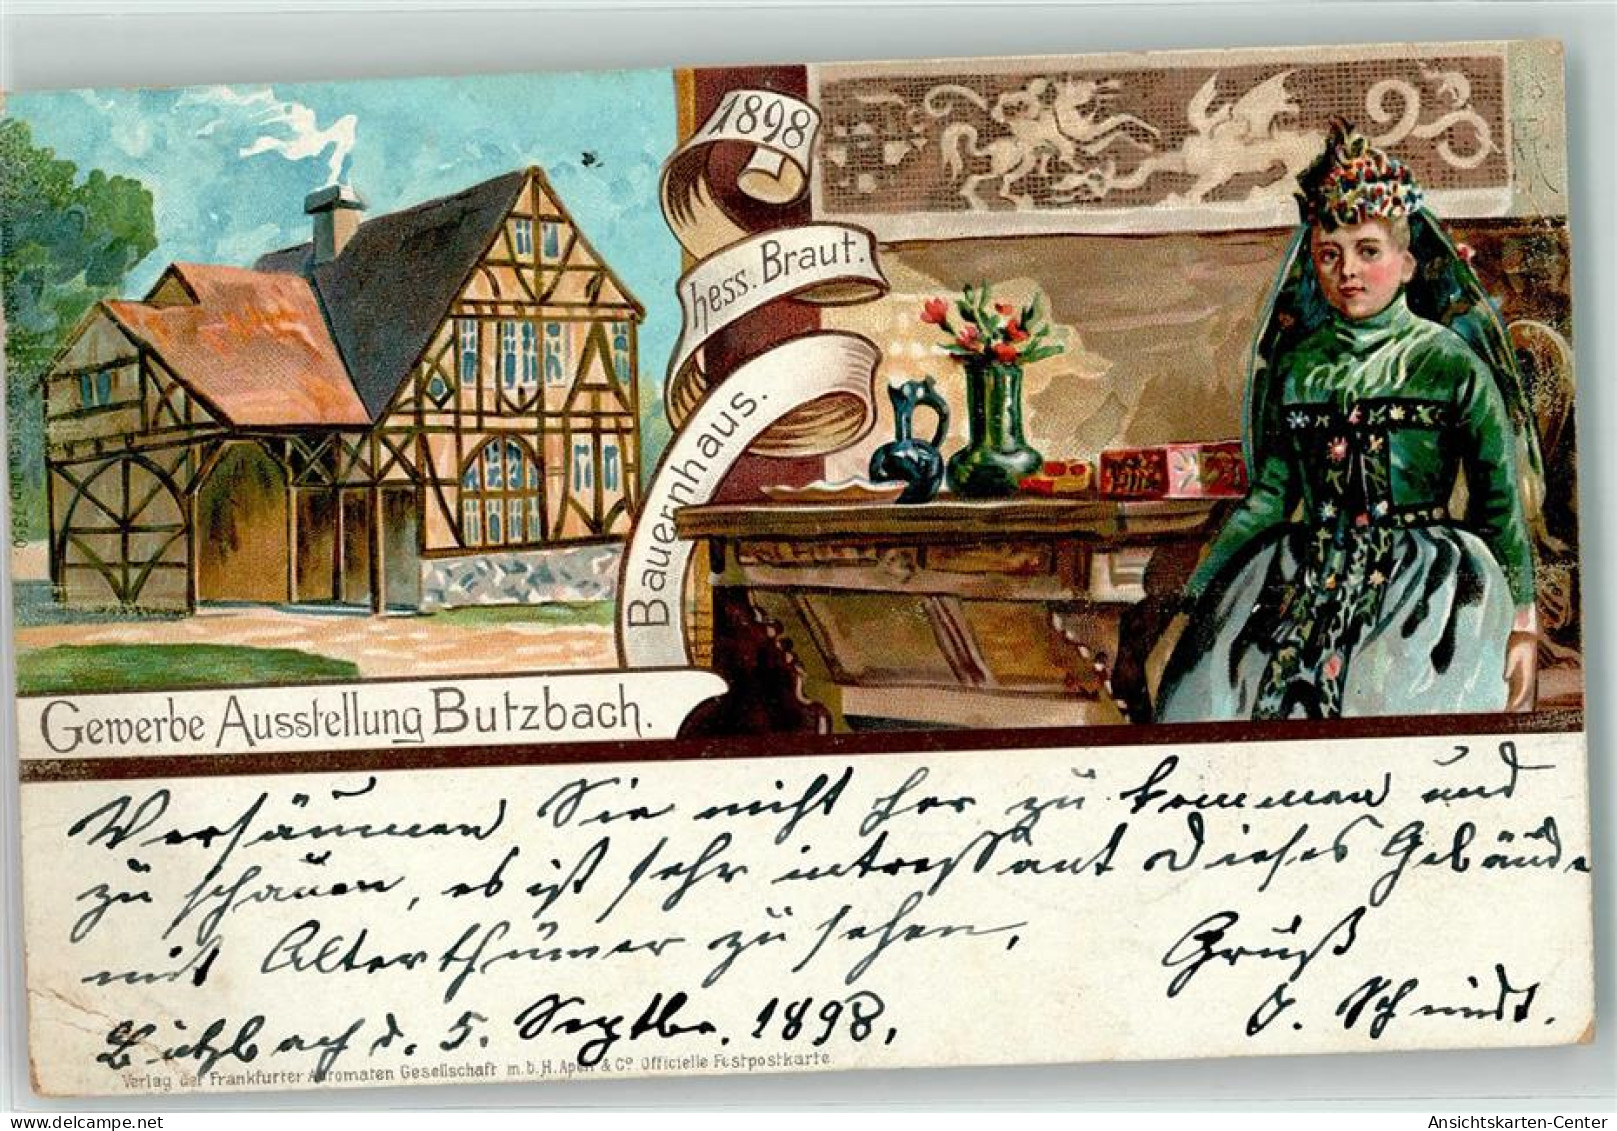 1898
hess. Braut.
Bauernhaus.
Gewerbe Ausstellung Butzbach.
Versäumen Sie nicht her zu kommen und
zu schauen, es ist sehr intressant dieses Gebäude
mit Alterthümer zu sehen,
Gruß
Butzbach d. 5. Septbr. 1898,
O. Schmidt.
Verlag der Frankfurter Automaten Gesellschaft m.b.H. & Co. Officielle Festpostkarte.
Ansichtskarten-Center